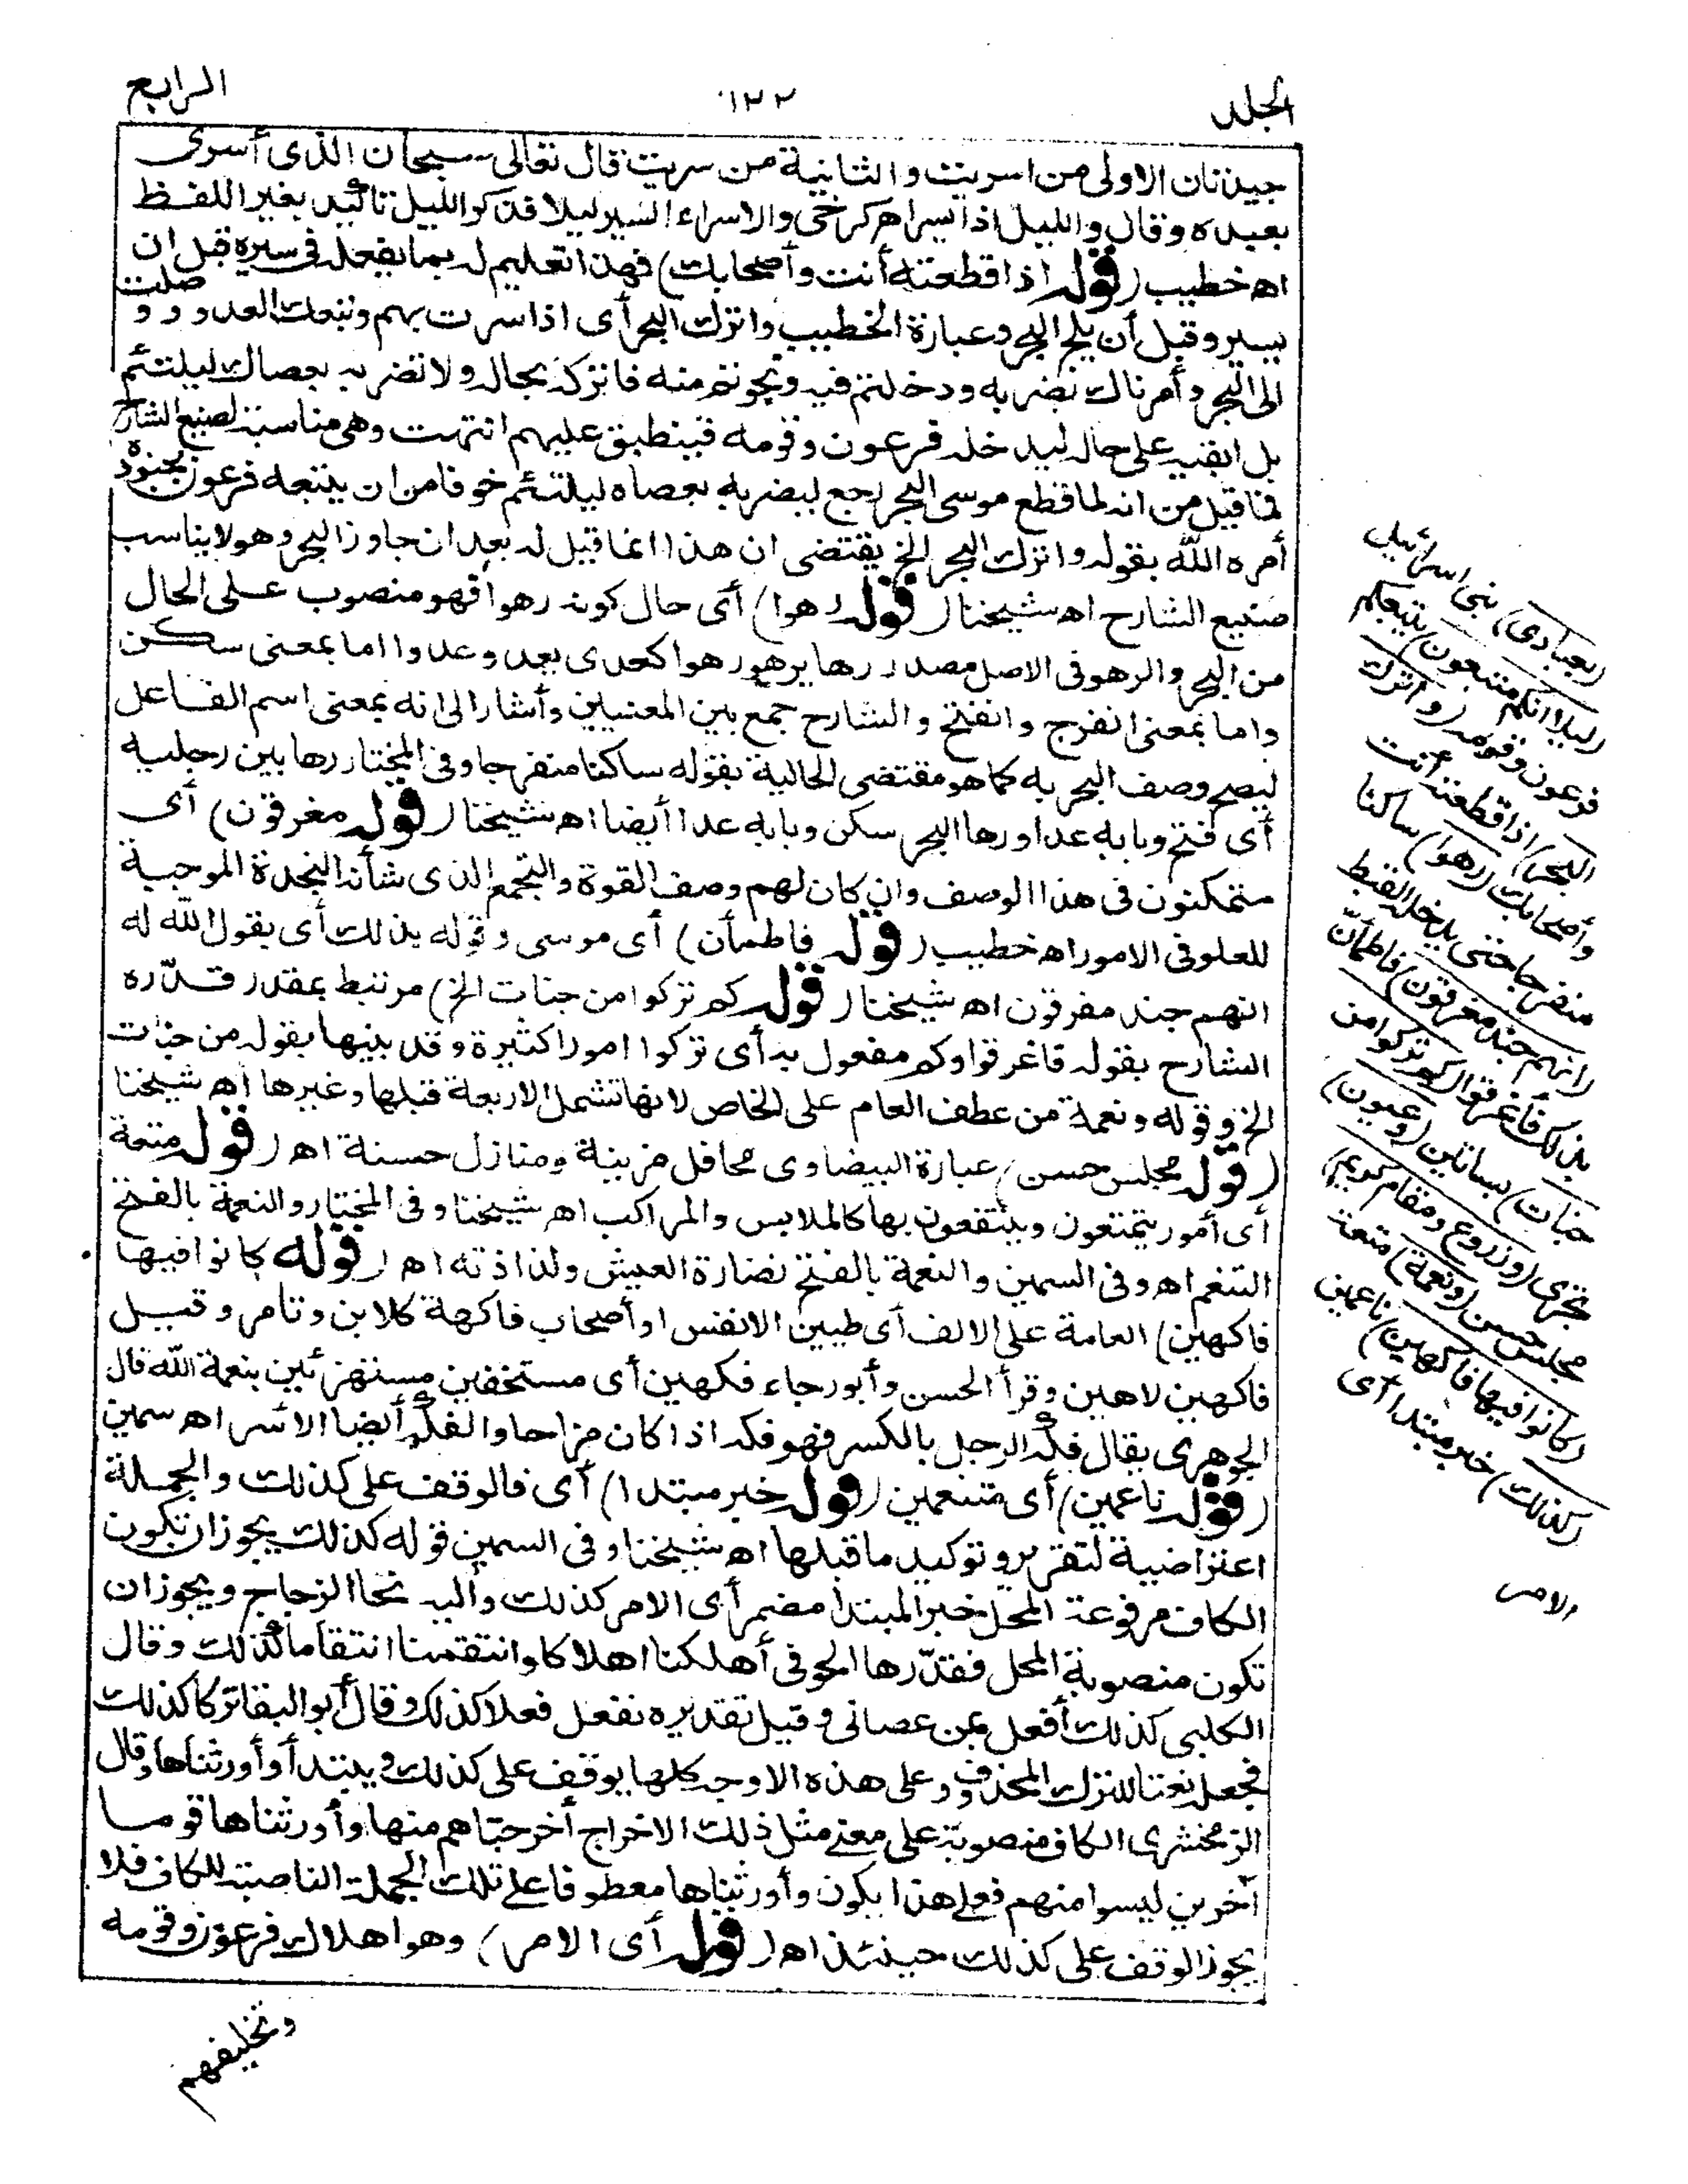 الجلد
١٢٢
الرابع
جيدتان الاولى من اسريت والثانية من سريت قال تعالى سبحان الذى أسرى
بعبده وقال والليل اذا يسر اهـ كرخى والاسراء السير ليلا فذكر الليل تأكيد بغير اللفظ
اهـ خطيب (قوله اذا قطعته أنت وأصحابك) فهذا تعليم له بما يفعله فى سيره قبل ان
يسير وقبل أن يلج البحر وعبارة الخطيب واترك البحر أى اذا سرت بهم وتبعك العدو ووصلت
الى البحر وأمرناك بضربه ودخلتم فيه ونجوتم منه فاتركه بحاله ولا تضربه بعصاك ليلتئم
بل ابقيه على حاله ليدخله فرعون وقومه فينطبق عليهم انتهت وهى مناسبة لصنيع الشارح
فما قيل من انه لما قطع موسى البحر رجع ليضربه بعصاه ليلتئم خوفا من ان يتبعه فرعون بجنوده
أمره الله بقوله واترك البحر الخ يقتضى ان هذا انما قيل له بعد ان جاوز البحر وهو لا يناسب
صنيع الشارح اهـ شيخنا (قوله رهوا) أى حال كونه رهوا فهو منصوب على الحال
من البحر والرهو فى الاصل مصدر رها يرهو رهوا كعدى يعد وعدوا اما بمعنى سكن
واما بمعنى انفرج وانفتح والشارح جمع بين المعنيين وأشار الى انه بمعنى اسم الفاعل
ليصح وصف البحر به كما هو مقتضى الحالية بقوله ساكنا منفرجا وفى المختار رها بين رجليه
أى فتح وبابه عدا ورها البحر سكن وبابه عدا أيضا اهـ شيخنا (قوله مغرقون) أى
متمكنون فى هذا الوصف وان كان لهم وصف القوة والتجمع الذى شأنه النجدة الموجبة
للعلو فى الامور اهـ خطيب (قوله فاطمأن) أى موسى وقوله بذلك أى بقول الله له
انهم جند مغرقون اهـ شيخنا (قوله كم تركوا من جنات الخ) مرتبط بمقدر قدّره
الشارح بقوله فاغرقوا وكم مفعول به أى تركوا امورا كثيرة وقد بينها بقوله من جنات
الخ وقوله ونعمة من عطف العام على الخاص لانها تشمل الاربعة قبلها وغيرها اهـ شيخنا
(قوله مجلس حسن) عبارة البيضاوى محافل مزينة ومنازل حسنة اهـ (قوله متعة
أى أمور يتمتعون وينتفعون بها كالملابس والمراكب اهـ شيخنا وفى المختار والنعمة بالفتح
التنعم اهـ وفى السمين والنعمة بالفتح نضارة العيش ولذاذته اهـ (قوله كانوا فيها
فاكهين) العامة على الالف أى طيبين الانفس او أصحاب فاكهة كلابن وتامر وقيل
فاكهين لاهين وقرأ الحسن وأبو رجاء فكهين أى مستخفين مستهزئين بنعمة الله قال
الجوهرى يقال فكه الرجل بالكسر فهو فكه اذا كان مزاحا والفكه أيضا الاشر اهـ سمين
(قوله ناعمين) أى متنعمين (قوله خبر مبتدا) أى فالوقف على كذلك والجملة
اعتراضية لتقرير وتوكيد ما قبلها اهـ شيخنا وفى السمين قوله كذلك يجوز ان تكون
الكاف مرفوعة المحل خبر المبتدا مضمر أى الامر كذلك واليه نحا الزجاج ويجوز ان
تكون منصوبة المحل فقدّرها الحوفى أهلكنا اهلاكا وانتقمنا انتقاما كذلك وقال
الكلبى كذلك أفعل بمن عصانى وقيل تقديره نفعل فعلا كذلك وقال أبو البقا تركا كذلك
فجعله نعتا للترك المحذوف وعلى هذه الاوجه كلها يوقف على كذلك ويبتدأ وأورثناها وقال
الزمخشرى الكاف منصوبة على معنى مثل ذلك الاخراج أخرجناهم منها وأورثناها قوما
آخرين ليسوا منهم فعلى هذا يكون وأورثناها معطوفا على تلك الجملة الناصبة للكاف فلا
يجوز الوقف على كذلك حينئذ اهـ (قوله أى الامر) وهو اهلاك فرعون وقومه
وتخليفهم
(بعبادى) بنى اسرائيل
(ليلا انكم متبعون) يتبعكم
فرعون وقومه (واترك
البحر) اذا قطعته أنت
وأصحابك (رهوا) ساكنا
منفرجا حتى يدخله القبط
(انهم جند مغرقون) فاطمأنّ
بذلك فأغرقوا (كم تركوا من
جنات) بساتين (وعيون)
تجرى (وزروع ومقام كريم)
مجلس حسن (ونعمة) متعة
(كانوا فيها فاكهين) ناعمين
(كذلك) خبر مبتدا أى
الامر